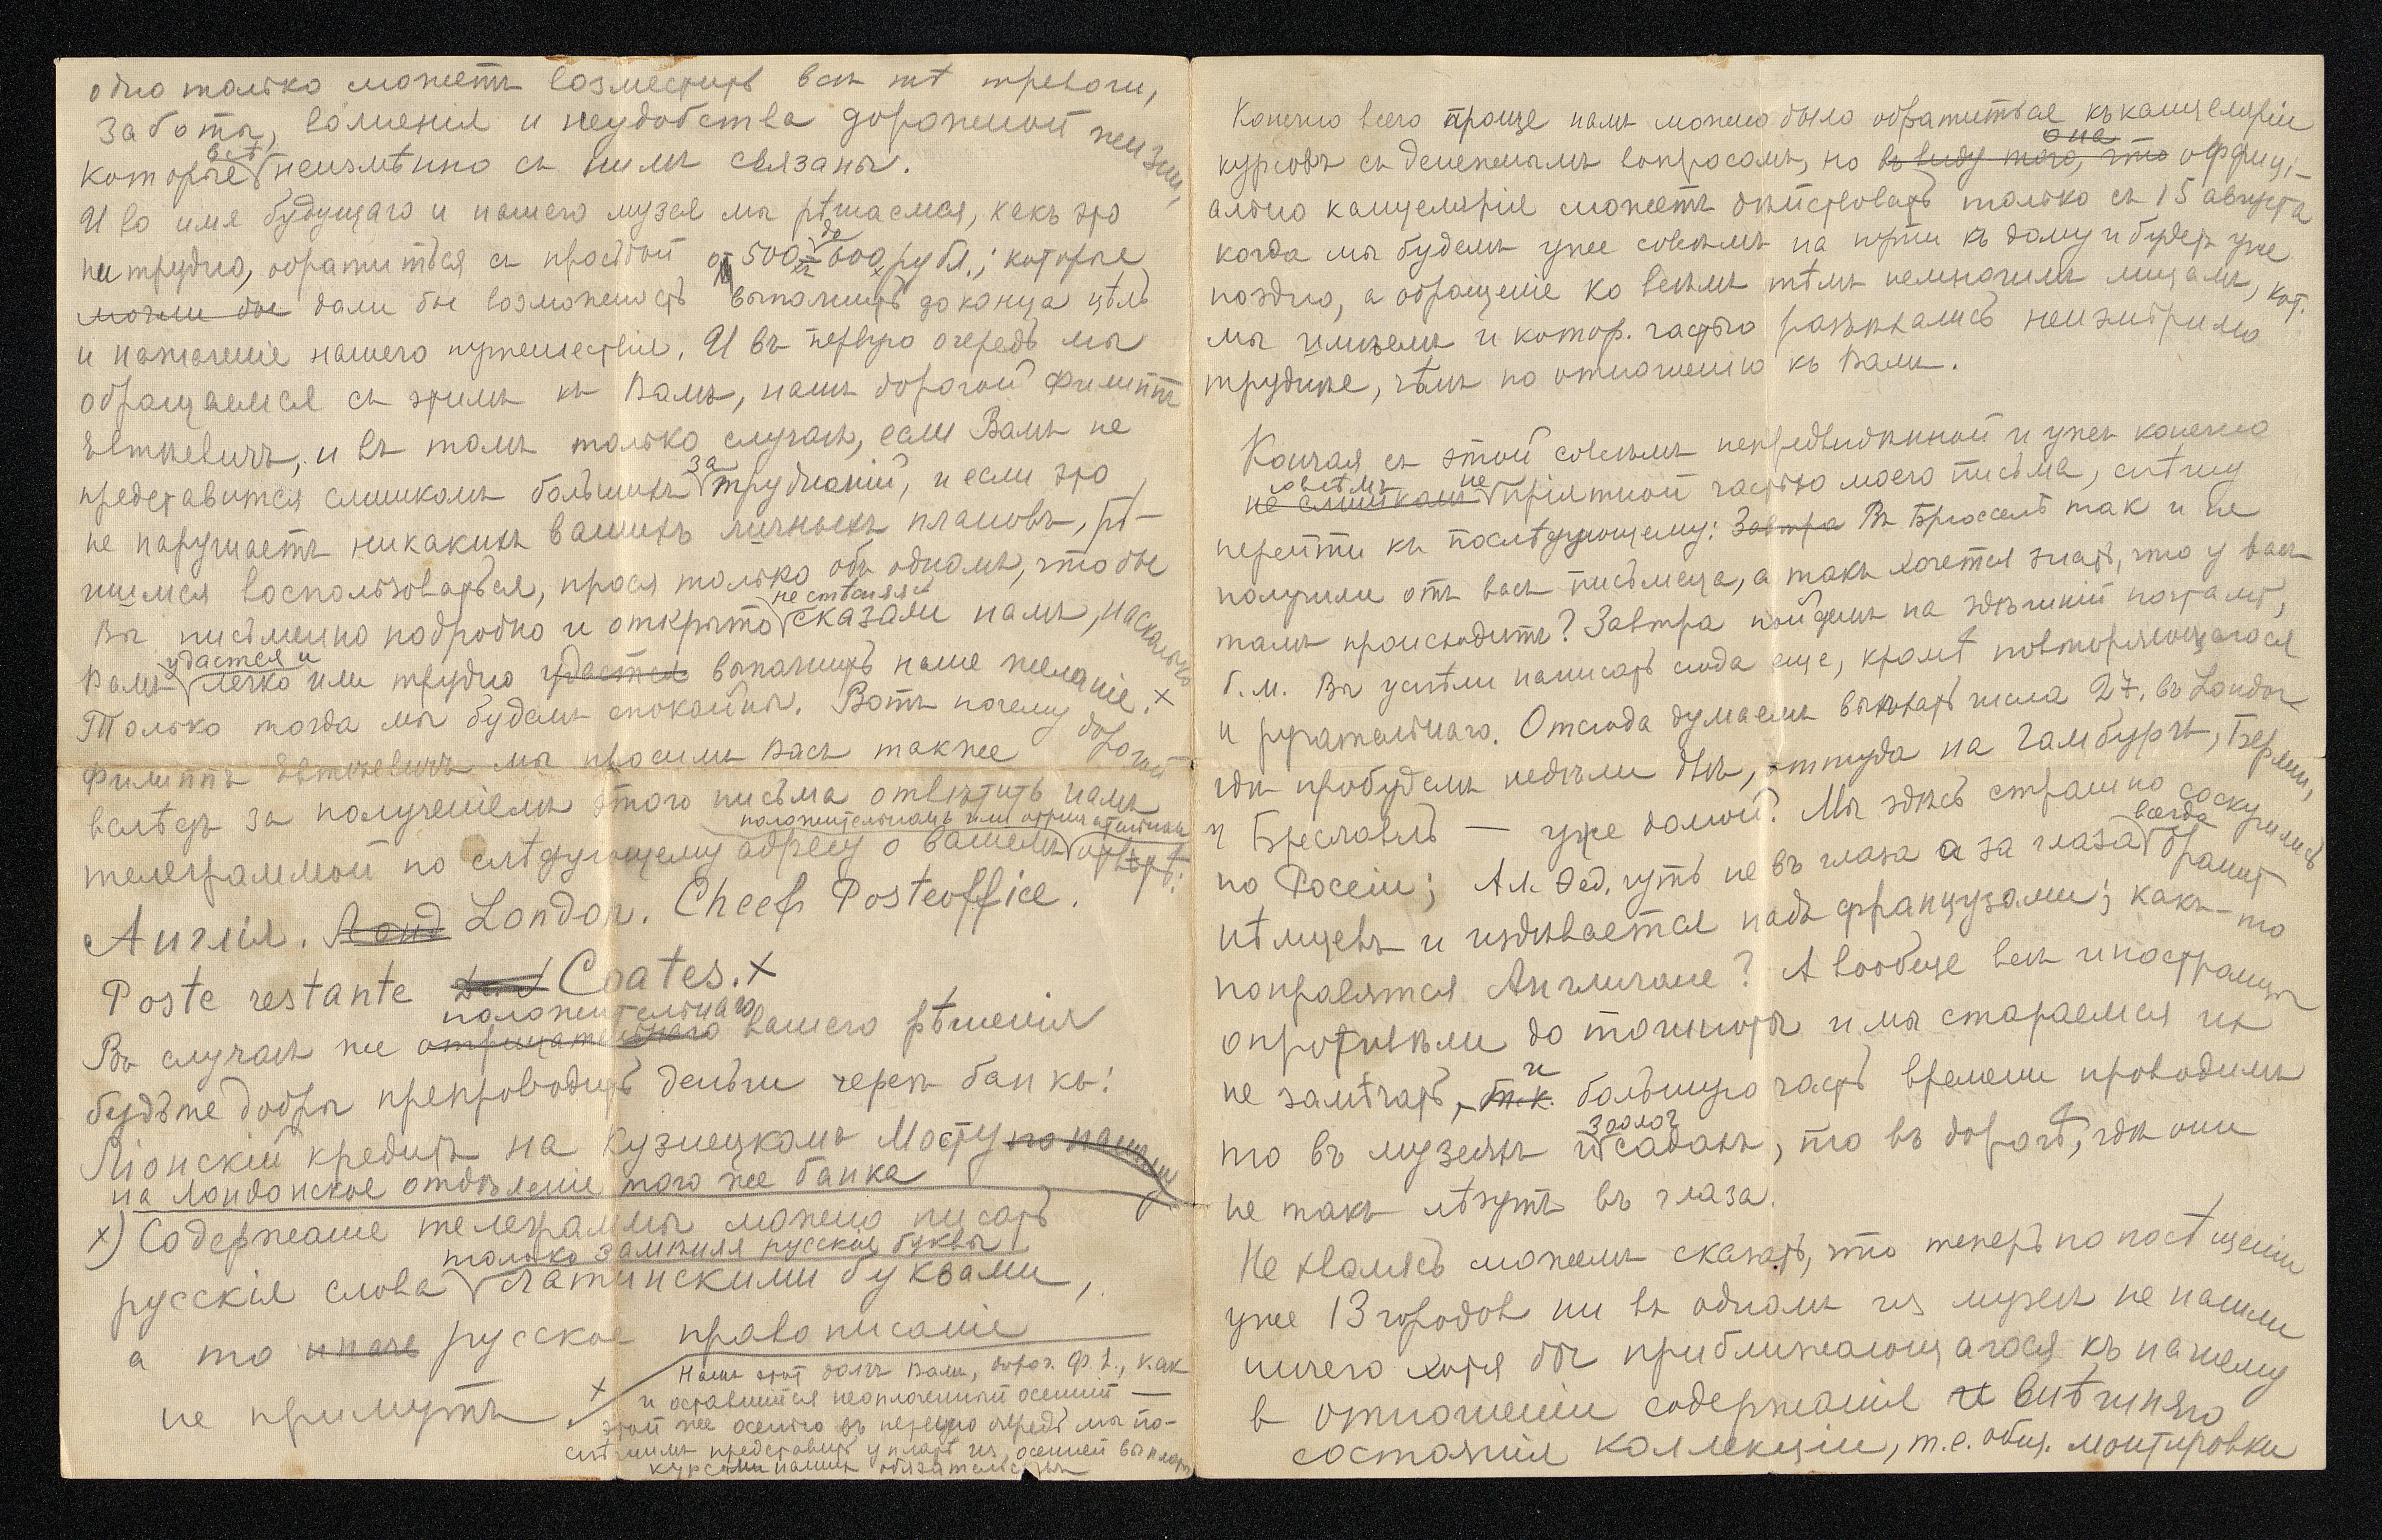 одно только можетъ возместить все тѣ тревоги,
заботы, волненія и неудобства дорожной жизни,
которые всѣ неизмѣнно съ нимъ связаны.
И во имя будущаго и нашего музея мы рѣшаемся, какъ это
ни трудно, обратиться съ просьбой о 500 до 600 рубл.; которые
могли бы дали бы возможность выполнить до конца цѣль
и назначеніе нашего путешествія. И въ первую очередь мы
обращаемся съ этимъ къ Вамъ, нашъ дорогой Филиппъ
Евтѣевичъ, и въ томъ только случаѣ, если Вамъ не
представится слишкомъ большихъ затрудненій, и если это
не нарушаетъ никакихъ вашихъ личныхъ плановъ, рѣ-
шимся воспользоваться, прося только объ одномъ, чтобы
Вы письменно подробно и открыто не стѣсняясь сказали намъ, насколько
Вамъ удастся и легко или трудно удастся выполнить наше желаніе.х
Только тогда мы будемъ спокойны. Вотъ почему дорогой
Филиппъ Евтѣевичъ мы просимъ Васъ также
вслѣдъ за полученіемъ этого письма отвѣтить намъ
положительномъ или отрицательномъ
телеграммой по слѣдующему адресу о вашемъ отвѣтѣ:
Англія. Lond London. Cheef Posteoffice.
Poste restante Coates.х
положительнаго
Въ случаѣ же отрицательнаго вашего рѣшенія
будьте добры препроводить деньги черезъ банкъ:
Ліонскій кредитъ на Кузнецкомъ Мосту
на лондонское отдѣленіе того же банка
х) Содержаніе телеграммы можно писать
только замѣняя русскія буквы
русскія слова латинскими буквами,
а то иначе русское правописаніе
не примутъ
х Нашъ этотъ долгъ Вамъ, дорог. Ф. Е., какъ
и оставшійся неоплаченный осенній —
этой же осенью въ первую очередь мы по-
спѣшимъ представить уплатъ изъ осенней выплаты
курсами нашихъ обязательствъ
Конечно всего проще намъ можно было обратиться къ канцеляріи
курсовъ съ денежнымъ вопросомъ, но въ виду того, что она оффиці-
ально канцелярія можетъ дѣйствовать только съ 15 августа
когда мы будемъ уже совсѣмъ на пути къ дому и будетъ уже
поздно, а обращеніе ко всѣмъ тѣмъ немногимъ лицамъ, кот.
мы имѣемъ и котор. частью разъѣхались неизмѣримо
труднѣе, чѣмъ по отношенію къ Вамъ.
Кончая съ этой совсѣмъ непредвидѣнной и ужъ конечно
не слишкомъ совсѣмъ не пріятной частью моего письма, спѣшу
перейти къ послѣдующему: Завтра Въ Брюсселѣ такъ и не
получили отъ васъ письмеца, а такъ хочется знать, что у васъ
тамъ происходитъ? Завтра пойдемъ на здѣшній почтамтъ,
б. м. Вы успѣли написать сюда еще, кромѣ повторяющагося
и ругательнаго. Отсюда думаемъ выѣхать числа 27. въ London
гдѣ пробудемъ недѣли двѣ, оттуда на Гамбургъ, Берлин,
и Бреславль — уже домой. Мы здѣсь страшно соскучились
по Россіи; Ал. Фед. чуть не въ глаза а за глаза всегда бранитъ
нѣмцевъ и издѣвается надъ французами; какъ-то
понравятся Англичане? А вообще всѣ иностранцы
опротивѣли до тошноты и мы стараемся ихъ
не замѣчать, т.к. и большую часть времени проводимъ
то въ музеяхъ и зоолог садахъ, то въ дорогѣ, гдѣ они
не такъ лѣзутъ въ глаза.
Не хвалясь можемъ сказать, что теперь по посѣщеніи
уже 13 городовъ ни въ одномъ изъ музеевъ не нашли
ничего хотя бы приближающагося къ нашему
в отношеніи содержанія и внѣшняго
состоянія коллекціи, т.е. общ. монтировки